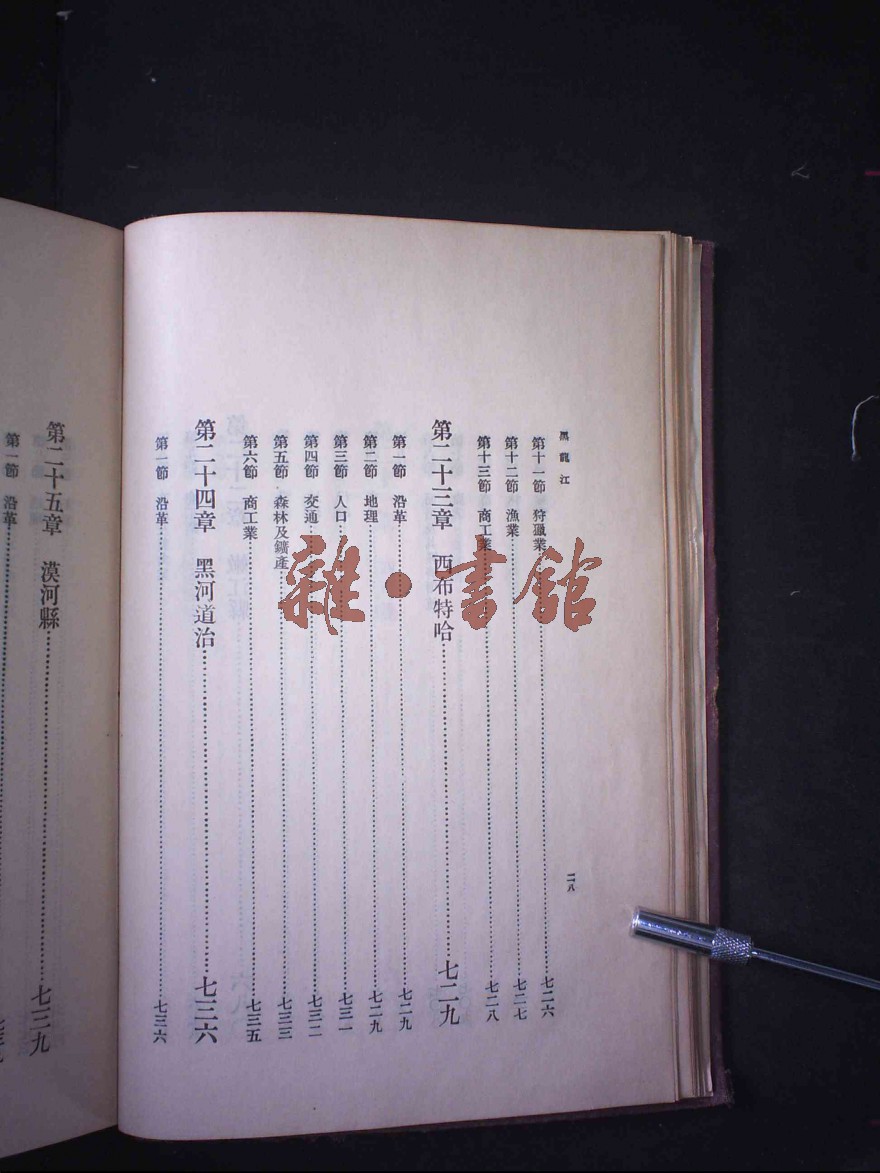 黑龍江
第十一節 狩獵業……七二六
第十二節 漁業……七二七
第十三節 商工業……七二八
第二十三章 西布特哈……七二九
第一節 沿革……七二九
第二節 地理……七二九
第三節 人口……七三一
第四節 交通……七三二
第五節 森林及鑛產……七三三
第六節 商工業……七三五
第二十四章 黑河道治……七三六
第一節 沿革……七三六
二八
第二十五章 漠河縣……七三九
第一節 沿革……七三九
雜·書館